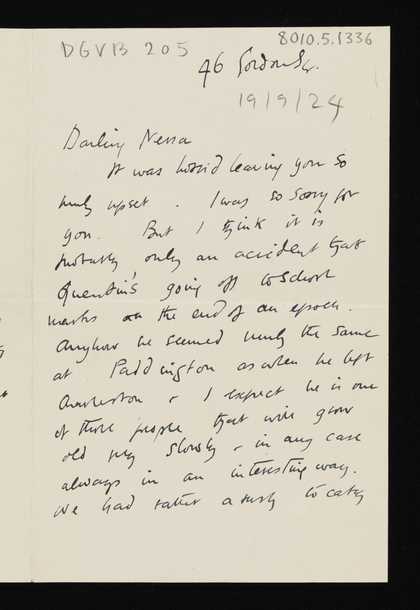 DGVB 205
8010.5.1336
46 Gordon Sq.
19/9/24
Darling Nessa
It was horrid leaving you so
upset. I was so sorry for
you. But I think it is
probably only an accident that
Quentin's going off to School
marks the end of an epoch.
Anyhow he seemed much the same
at Paddington as when he left
Charleston & I expect he is one
of those people that will grow
old very slowly & in any case
always in an interesting way.
We had rather a rush to catch